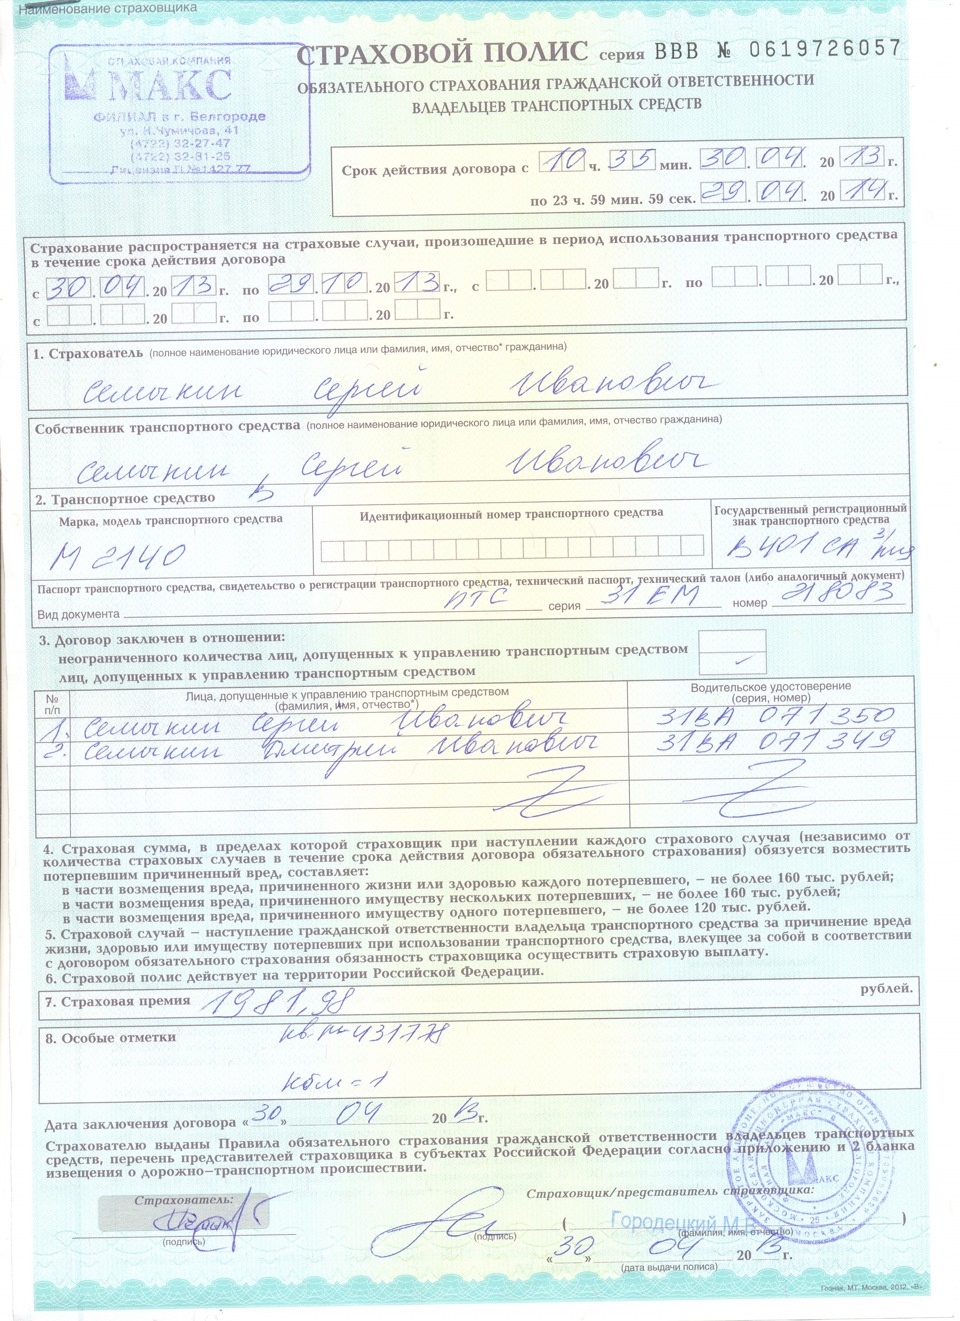 Наименование страховщика
СТРАХОВАЯ КОМПАНИЯ
МАКС
ФИЛИАЛ в г. Белгороде
ул. Н.Чумичова, 41
(4722) 32-27-47
(4722) 32-31-25
Лицензия П №1427 77
СТРАХОВОЙ ПОЛИС серия ВВВ № 0619726057
ОБЯЗАТЕЛЬНОГО СТРАХОВАНИЯ ГРАЖДАНСКОЙ ОТВЕТСТВЕННОСТИ
ВЛАДЕЛЬЦЕВ ТРАНСПОРТНЫХ СРЕДСТВ
Срок действия договора с 10 ч. 35 мин. 30.04. 2013 г.
по 23 ч. 59 мин. 59 сек. 29.04. 2014 г.
Страхование распространяется на страховые случаи, произошедшие в период использования транспортного средства
в течение срока действия договора
с 30.04.2013 г. по 29.10.2013 г., с . .20 г. по . .20 г.,
с . .20 г. по . .20 г.
1. Страхователь (полное наименование юридического лица или фамилия, имя, отчество* гражданина)
Семыкин Сергей Иванович
Собственник транспортного средства (полное наименование юридического лица или фамилия, имя, отчество гражданина)
Семыкин Сергей Иванович
2. Транспортное средство
Марка, модель транспортного средства
Идентификационный номер транспортного средства
Государственный регистрационный
знак транспортного средства
М 2140
В401СА 31
Паспорт транспортного средства, свидетельство о регистрации транспортного средства, технический паспорт, технический талон (либо аналогичный документ)
Вид документа ПТС серия 31 ЕМ номер 218083
3. Договор заключен в отношении:
неограниченного количества лиц, допущенных к управлению транспортным средством
лиц, допущенных к управлению транспортным средством
№ п/п
Лица, допущенные к управлению транспортным средством
(фамилия, имя, отчество*)
Водительское удостоверение
(серия, номер)
1. Семыкин Сергей Иванович 31ВА 071350
2. Семыкин Дмитрий Иванович 31ВА 071349
4. Страховая сумма, в пределах которой страховщик при наступлении каждого страхового случая (независимо от
количества страховых случаев в течение срока действия договора обязательного страхования) обязуется возместить
потерпевшим причиненный вред, составляет:
в части возмещения вреда, причиненного жизни или здоровью каждого потерпевшего, – не более 160 тыс. рублей;
в части возмещения вреда, причиненного имуществу нескольких потерпевших, – не более 160 тыс. рублей;
в части возмещения вреда, причиненного имуществу одного потерпевшего, – не более 120 тыс. рублей.
5. Страховой случай – наступление гражданской ответственности владельца транспортного средства за причинение вреда
жизни, здоровью или имуществу потерпевших при использовании транспортного средства, влекущее за собой в соответствии
с договором обязательного страхования обязанность страховщика осуществить страховую выплату.
6. Страховой полис действует на территории Российской Федерации.
7. Страховая премия 1981,98 рублей.
8. Особые отметки
кв № 431778
кбм = 1
Дата заключения договора «30» 04 2013 г.
Страхователю выданы Правила обязательного страхования гражданской ответственности владельцев транспортных
средств, перечень представителей страховщика в субъектах Российской Федерации согласно приложению и 2 бланка
извещения о дорожно–транспортном происшествии.
Страхователь:
(подпись)
Страховщик/представитель страховщика:
(подпись)
( Городецкий М.В. )
(фамилия, имя, отчество)
«30» 04 2013 г.
(дата выдачи полиса)
МАКС
Гознак, МТ, Москва, 2012, «В»